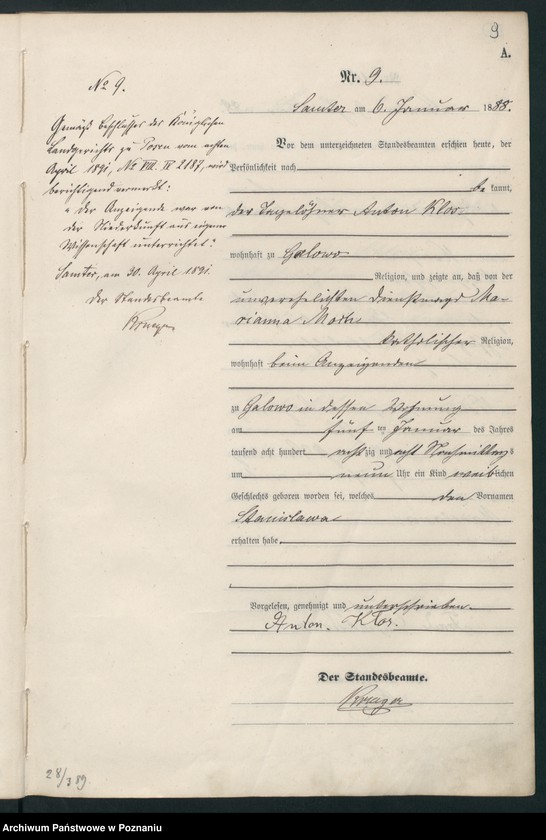 9
A.
Nr. 9.
Samter am 6. Januar 1888.
Vor dem unterzeichneten Standesbeamten erschien heute, der
Persönlichkeit nach
be kannt,
der Tagelöhner Anton Klos
wohnhaft zu Galowo
Religion, und zeigte an, daß von der
unverehelichten Dienstmagd Ma-
rianna
katholischer Religion,
wohnhaft beim Anzeigenden
zu Galowo in dessen Wohnung
am fünf ten Januar des Jahres
tausend acht hundert achtzig und acht Nachmittags
um neun Uhr ein Kind weiblichen
Geschlechts geboren worden sei, welches den Vornamen
Stanislawa
erhalten habe.
Vorgelesen, genehmigt und unterschrieben.
Anton. Klos.
Der Standesbeamte.
Krueger
No 9.
Gemäß Beschlusses des Königlichen
Landgerichts zu Posen vom achten
April 1891, No VIII. 2187, wird
berichtigend vermerkt:
"der Anzeigende war von
der Niederkunft aus eigener
Wissenschaft unterrichtet."
Samter, am 30. April 1891.
Der Standesbeamte
Krueger
28/3 89
Archiwum Państwowe w Poznaniu